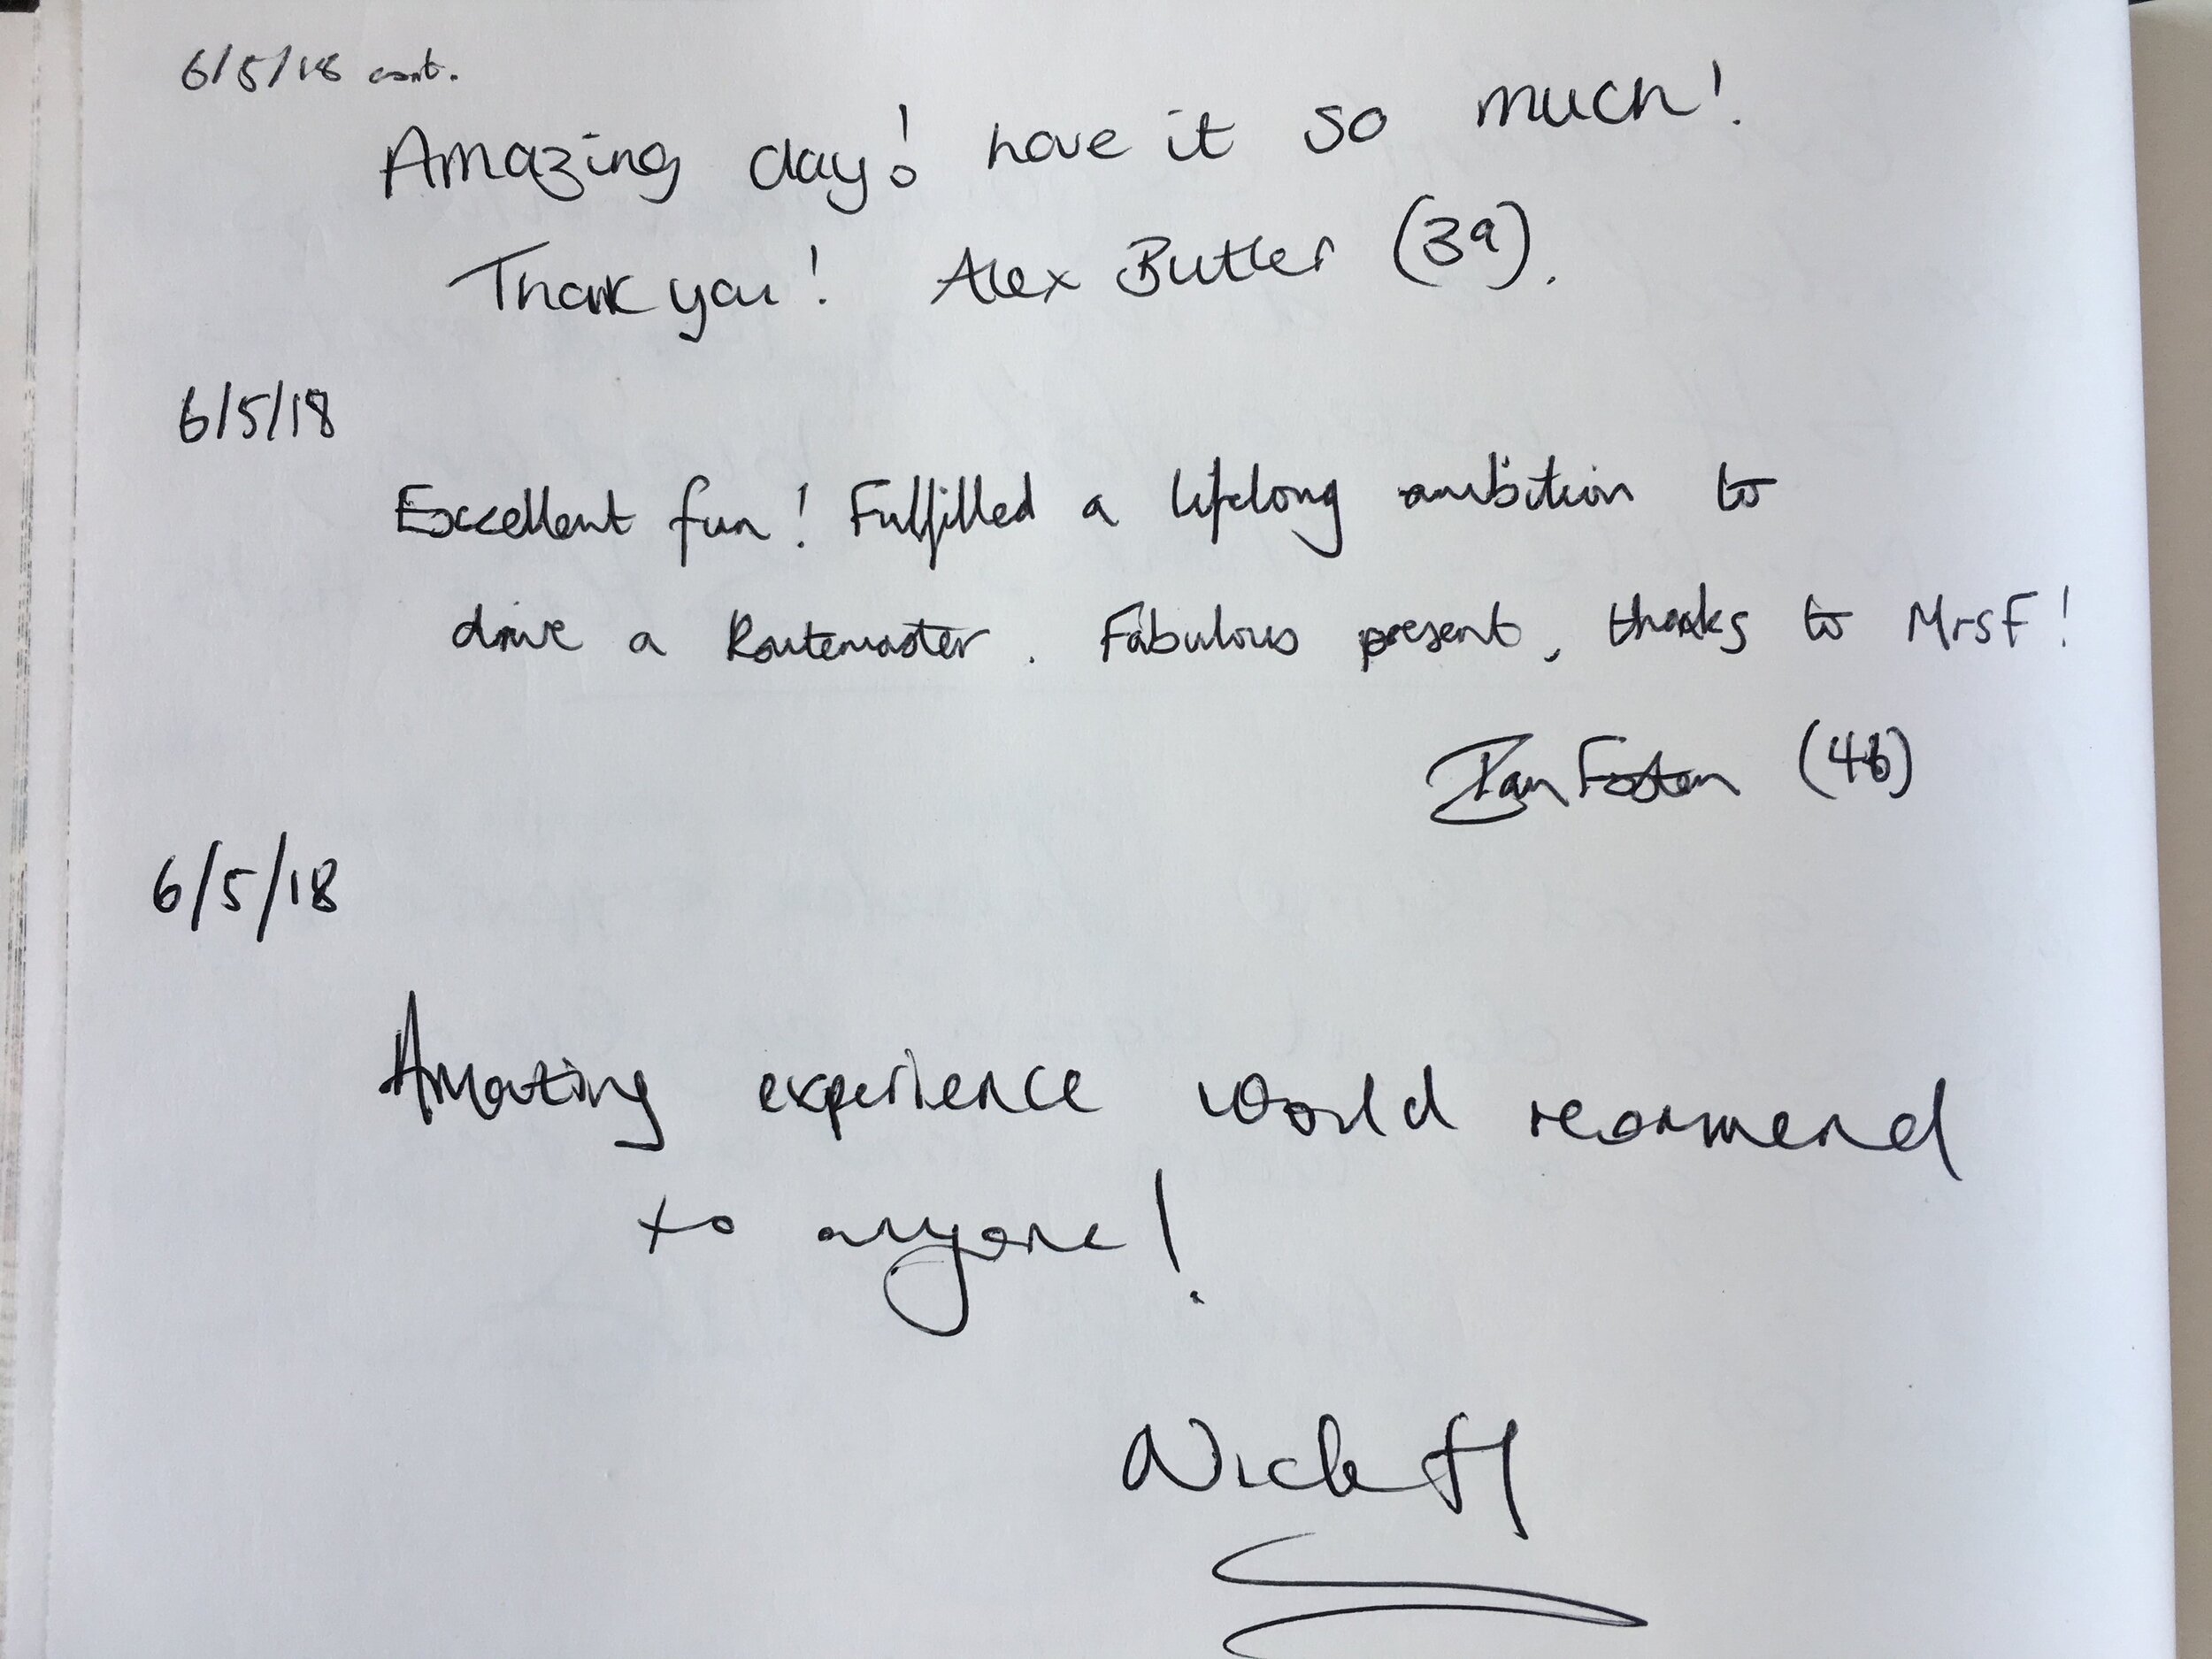 6/5/18 cont.
Amazing day! Love it so much!
Thank you! Alex Butler (39).
6/5/18
Excellent fun! Fulfilled a lifelong ambition to
drive a Routemaster. Fabulous present, thanks to Mrs F!
Ian (46)
6/5/18
Amazing experience would recommend
to anyone!
Nick H